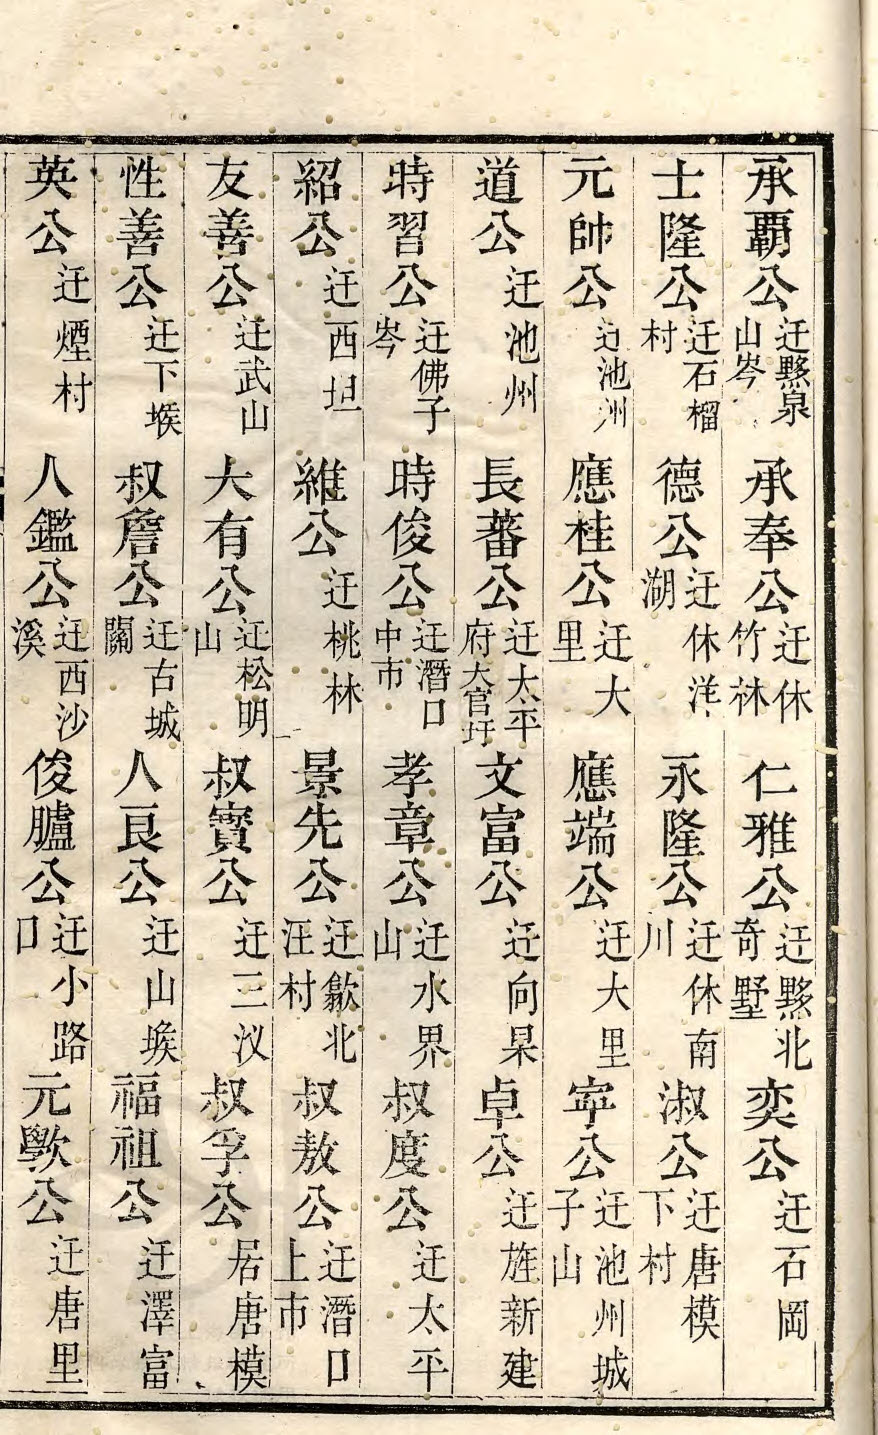 承霸公迁黟泉山岑　承奉公迁休竹林　仁雅公迁黟北奇墅　奕公迁石岡
士隆公迁石榴村　德公迁休洋湖　永隆公迁休南川　淑公迁唐模下村
元帥公迁池州　應桂公迁大里　應端公迁大里　寕公迁池州城子山
道公迁池州　長蕃公迁太平府大官圩　文富公迁向杲　卓公迁旌新建
時習公迁佛子岑　時俊公迁潛口中市　孝章公迁水界山　叔度公迁太平
紹公迁西坦　維公迁桃林　景先公迁歙北汪村　叔敖公迁潛口上市
友善公迁武山　大有公迁松明山　叔實公迁三汊　叔孚公居唐模
性善公迁下堠　叔詹公迁古城關　人良公迁山堠　福祖公迁澤富
英公迁煙村　人鑑公迁西沙溪　俊臚公迁小路口　元歟公迁唐里